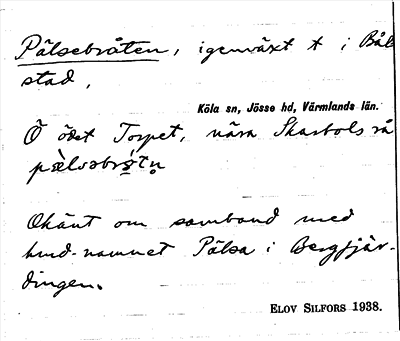 Pälsebråten, igenväxt t i Bål
stad,
Köla sn, Jösse hd, Värmlands län.
Ö ödet Torpet, nära Skarbols rå
pæ̀lsəbrɷ́tn̥
Okänt om samband med
hmd-namnet Pälsa i Bergsjär-
dingen.
ELOV SILFORS 1938.